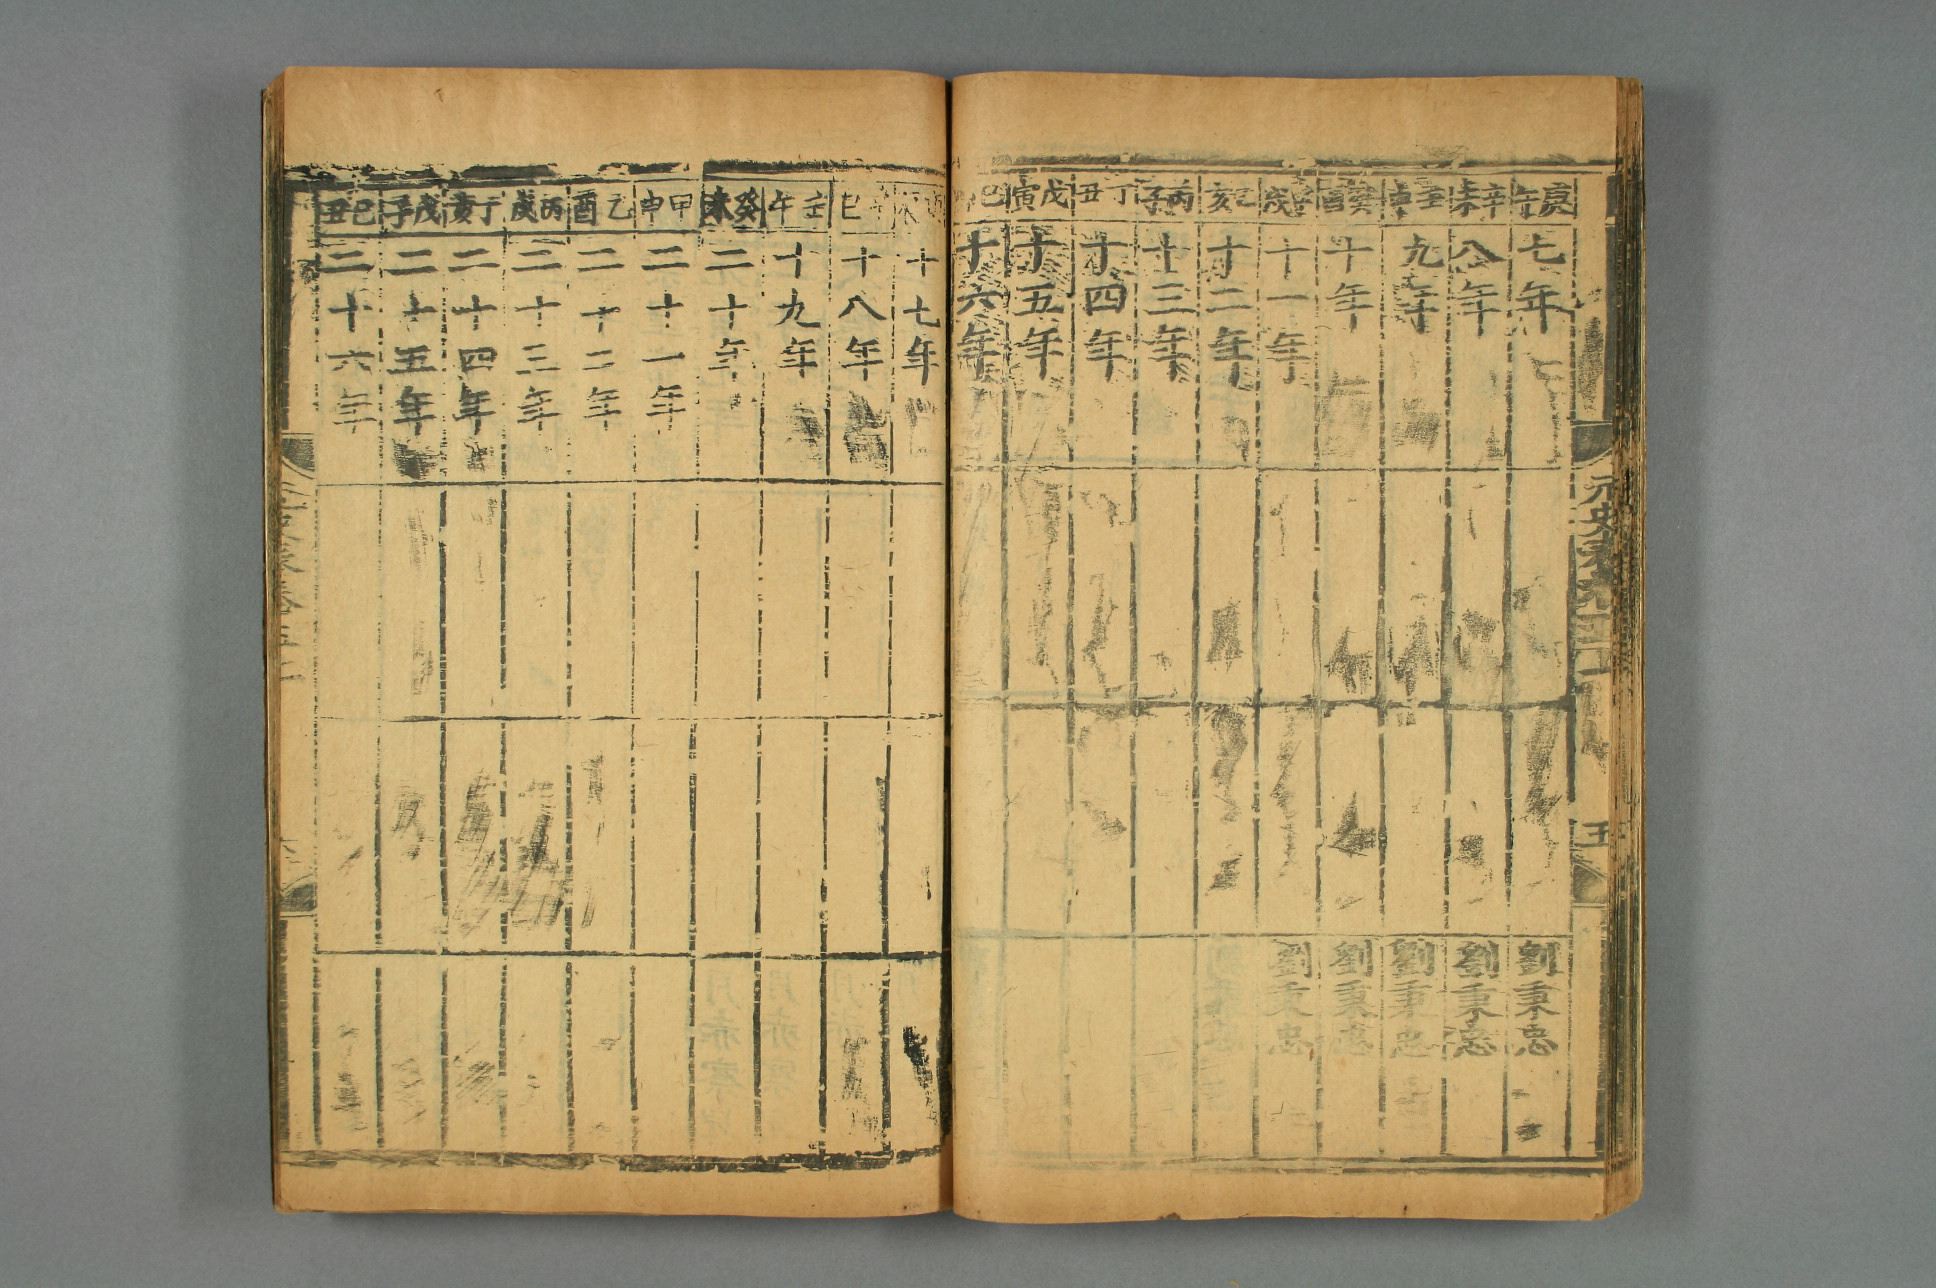 庚午
七年
劉秉忠
辛未
八年
劉秉忠
壬申
九年
劉秉忠
癸酉
十年
劉秉忠
戌
十一年
劉秉忠
乙亥
十二年
丙子
十三年
丁丑
十四年
戊寅
十五年
己
十六年
十七年
巳
十八年
壬午
十九年
癸未
二十年
甲申
二十一年
乙酉
二十二年
丙戌
二十三年
丁亥
二十四年
戊子
二十五年
己丑
二十六年
五